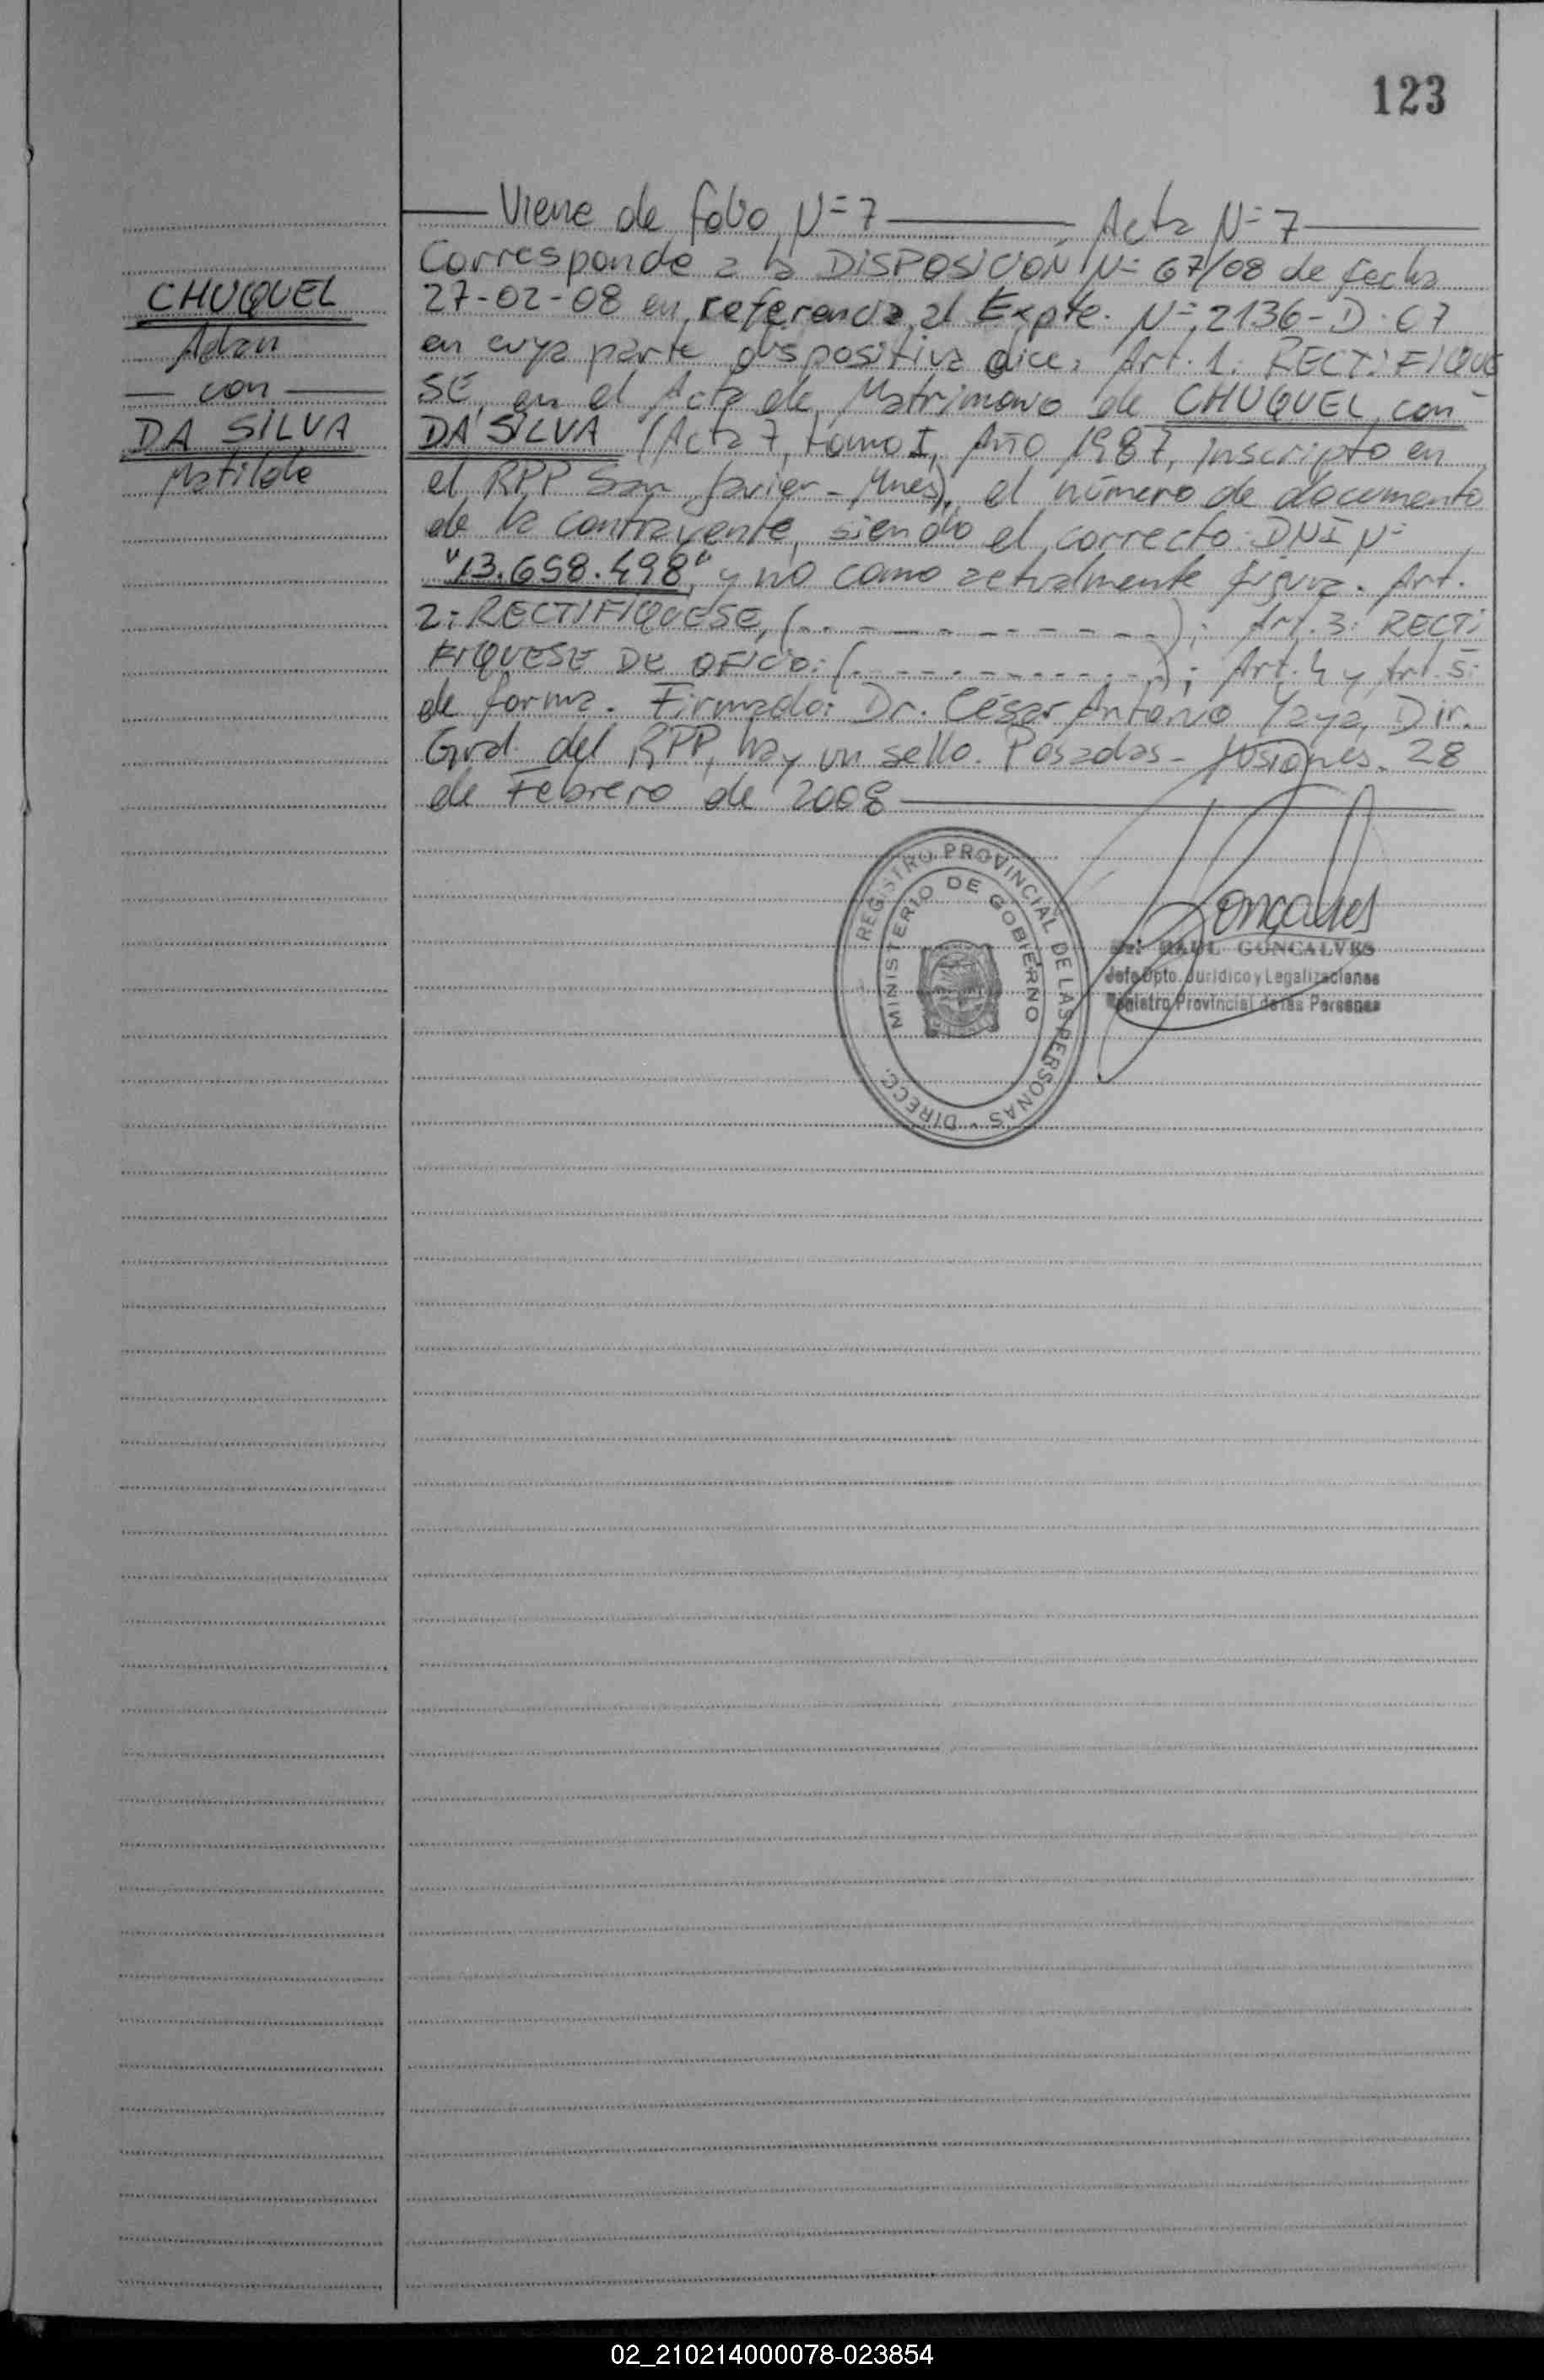 123
Viene de folio N=7 Acta N=7
Corresponde a la DISPOSICION N= 67/08 de fecha
27-02-08 en referencia al Expte. N= 2136-D-07
en cuya parte dispositiva dice: Art. 1: RECTIFIQUE
SE, en el Acta de Matrimonio de CHUQUEL con
DA SILVA (Acta 7, tomo I, Año 1987, Inscripto en
el RPP San Javier - Mnes), el número de documento
de la contrayente, siendo el correcto: DNI N=
"13.658.498", y no como actualmente figura. Art.
2: RECTIFIQUESE, (- - - - - - - - - - -); Art. 3: RECTI
FIQUESE DE OFICIO: (- - - - - - - - - - -); Art. 4 y Art. 5:
de forma. Firmado: Dr. César Antonio Yaya, Dir.
Gral. del RPP, hay un sello. Posadas - Misiones. 28
de Febrero de 2008
CHUQUEL
Adan
— con —
DA SILVA
Matilde
REGISTRO PROVINCIAL DE LAS PERSONAS - DIRECC.
MINISTERIO DE GOBIERNO
Goncalves
Dr. RAUL GONCALVES
Jefe Dpto. Jurídico y Legalizaciones
Registro Provincial de las Personas
02_210214000078-023854